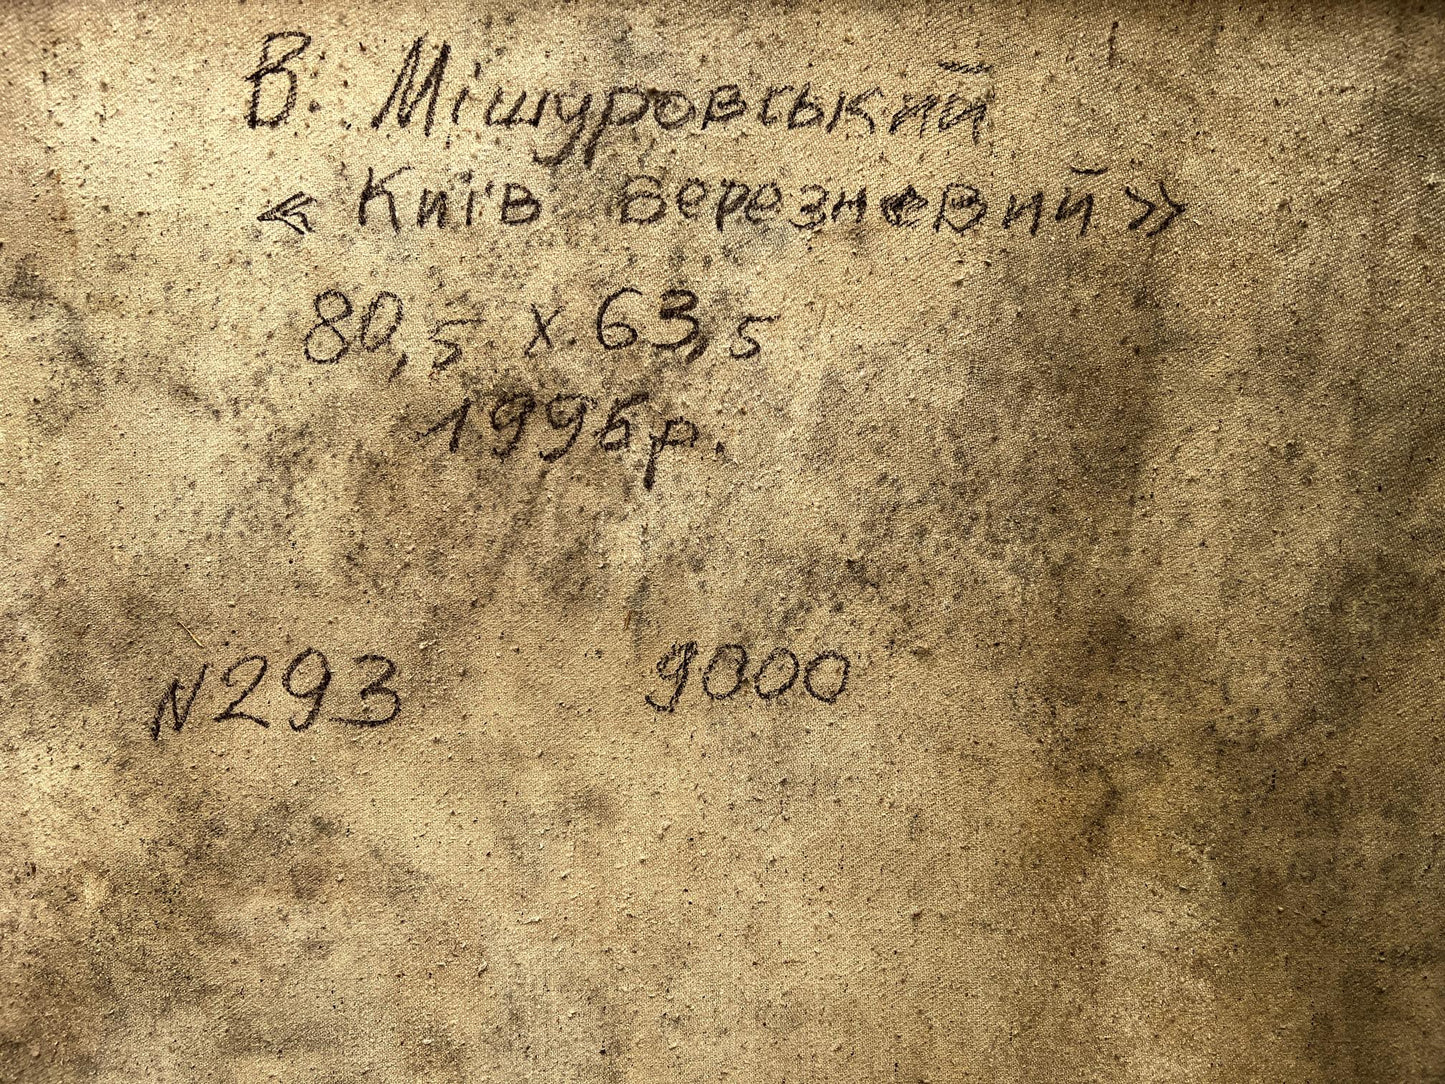 В. Мішуровський
« Київ березневий »
80,5 х 63,5
1996р.
N293 9000